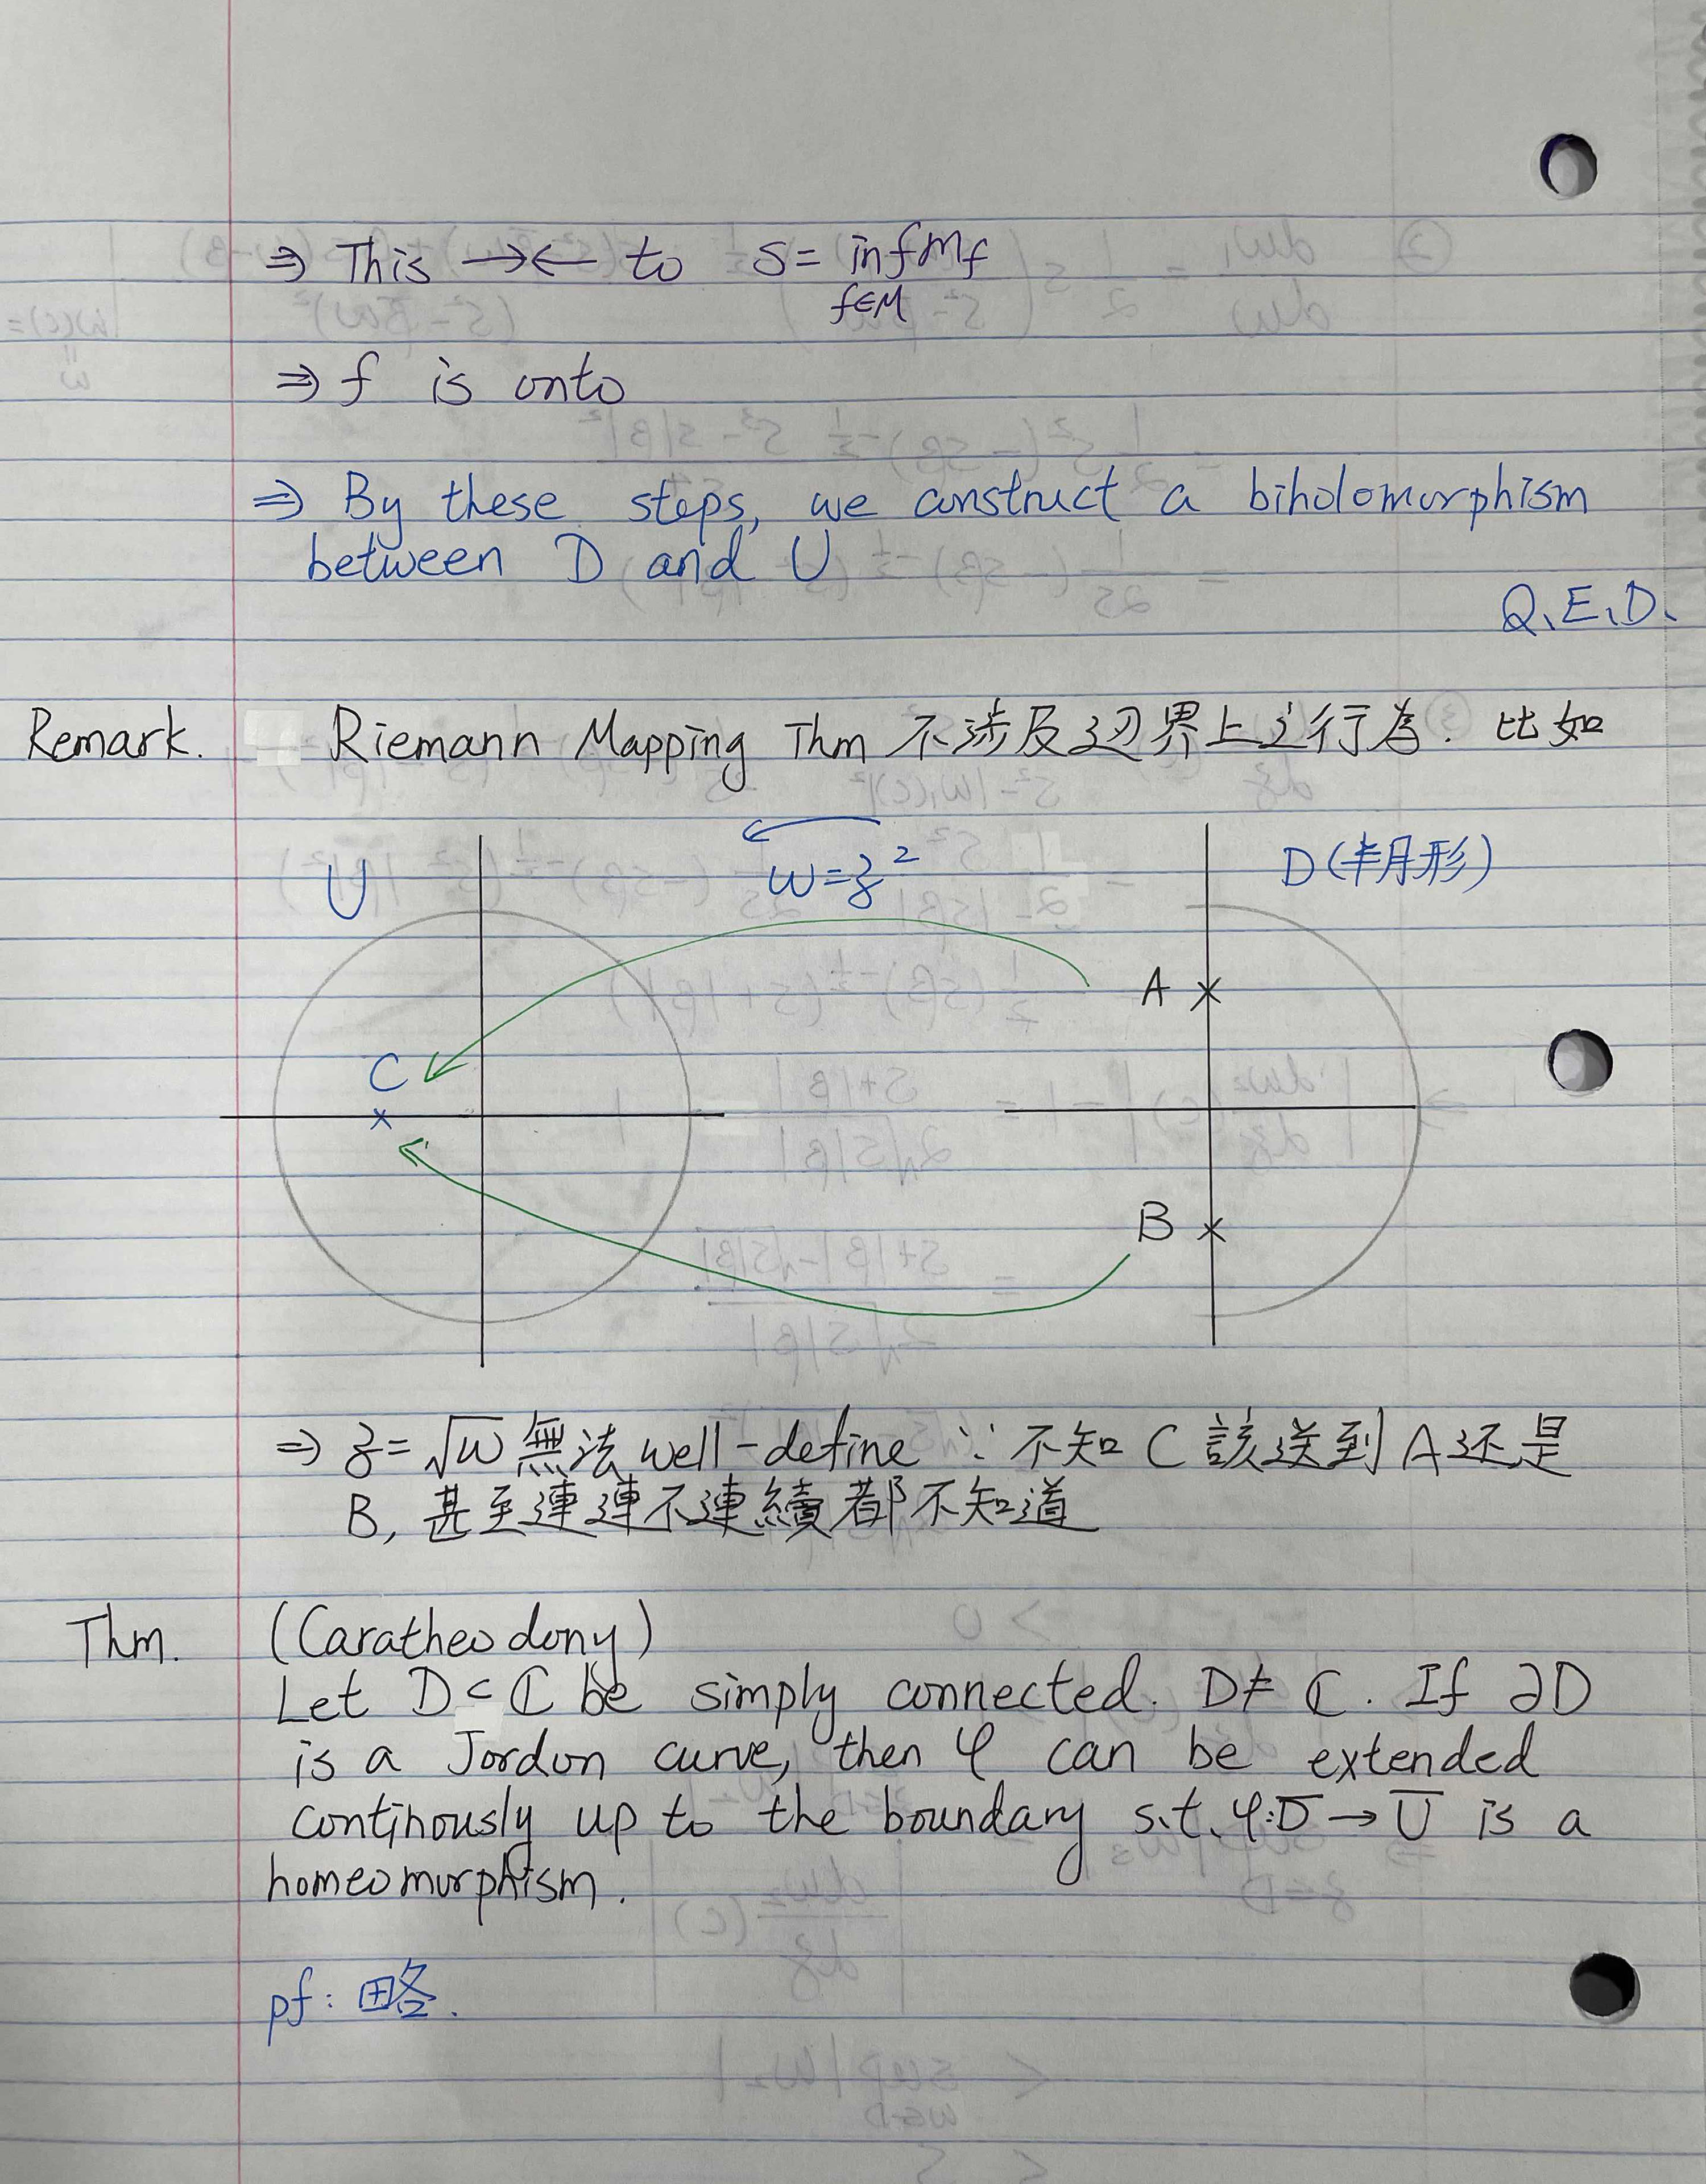 ⇒ This →← to S = inf M_f
f∈M
⇒ f is onto
⇒ By these steps, we construct a biholomorphism
between D and U
Q.E.D.
Remark. Riemann Mapping Thm 不涉及边界上之行為. 比如
U w=z² D(半月形)
A
C
B
⇒ z=√w 無法 well-define ∵ 不知 C 該送到 A 还是
B, 甚至連連不連續都不知道
Thm. (Caratheodony)
Let D⊂ℂ be simply connected. D≠ℂ. If ∂D
is a Jordon curve, then φ can be extended
continously up to the boundary s.t. φ:D̅→U̅ is a
homeomorphism.
pf: 略.